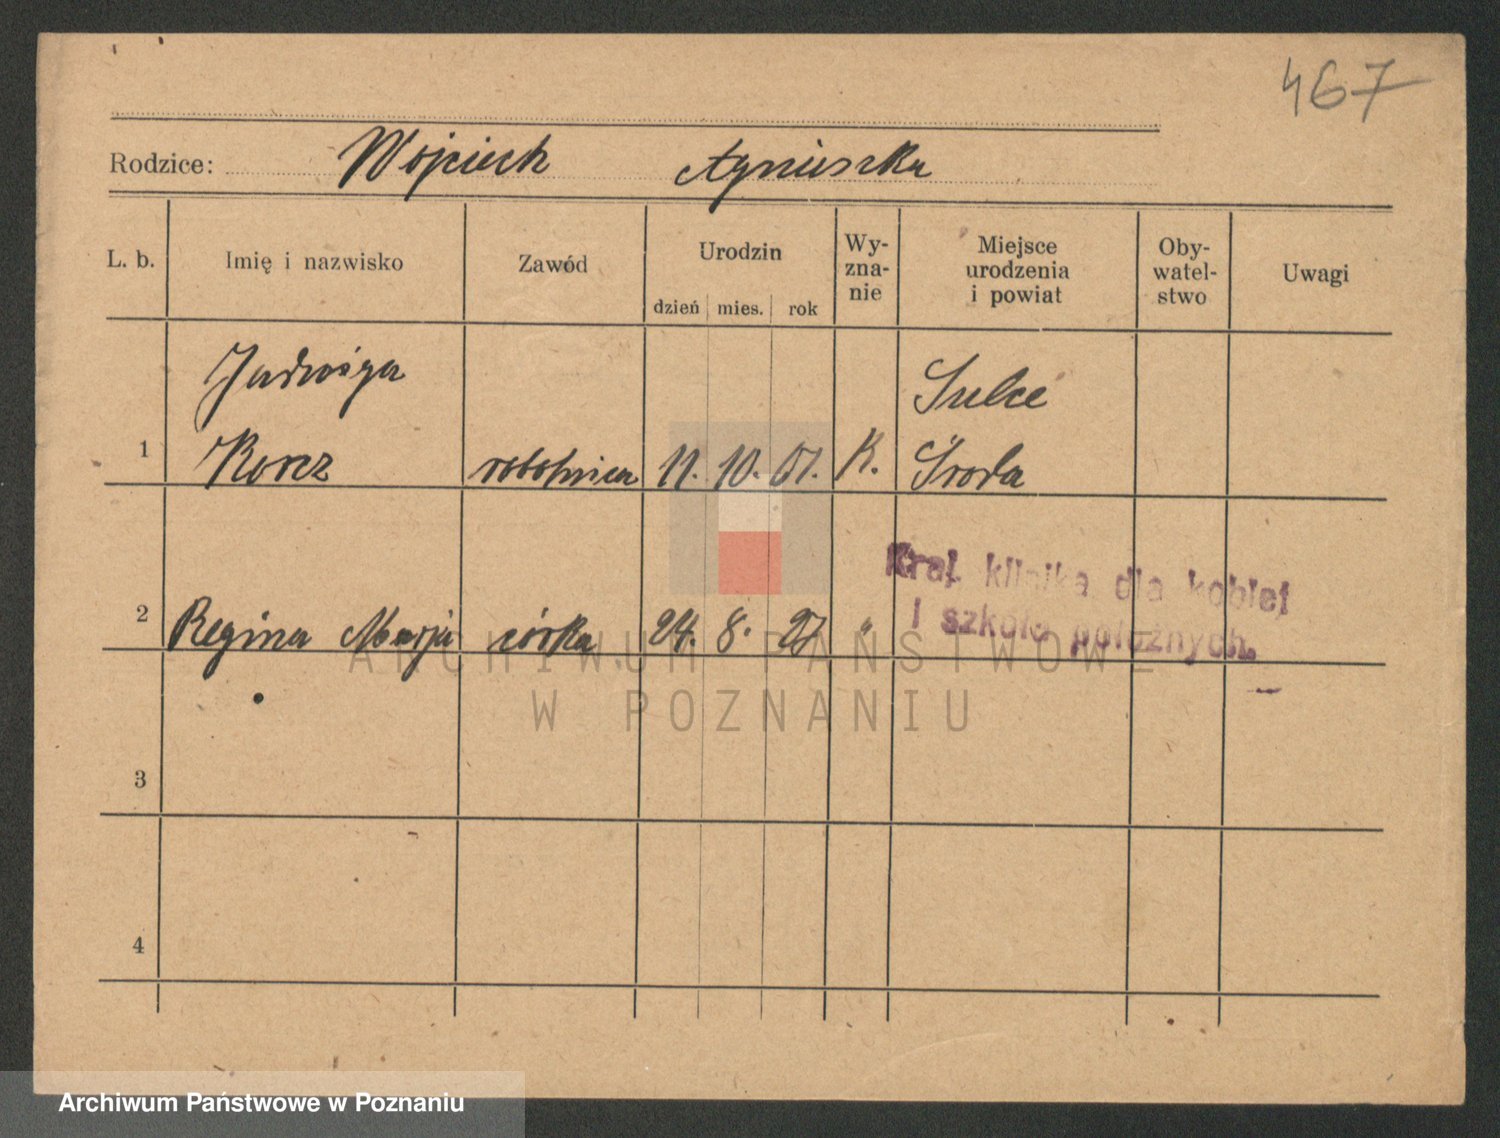 467
Rodzice: Wojciech Agnieszka
L. b. Imię i nazwisko Zawód Urodzin Wy-zna-nie Miejsce urodzenia i powiat Oby-watel-stwo Uwagi
dzień mies. rok
Jadwiga Sulce
1 Korcz robotnica 11. 10. 01. K. Środa
Kraj. klinika dla kobiet
i szkoła położnych.
2 Regina Marja córka 24. 8. 27 "
ARCHIWUM PAŃSTWOWE
W POZNANIU
3
4
Archiwum Państwowe w Poznaniu